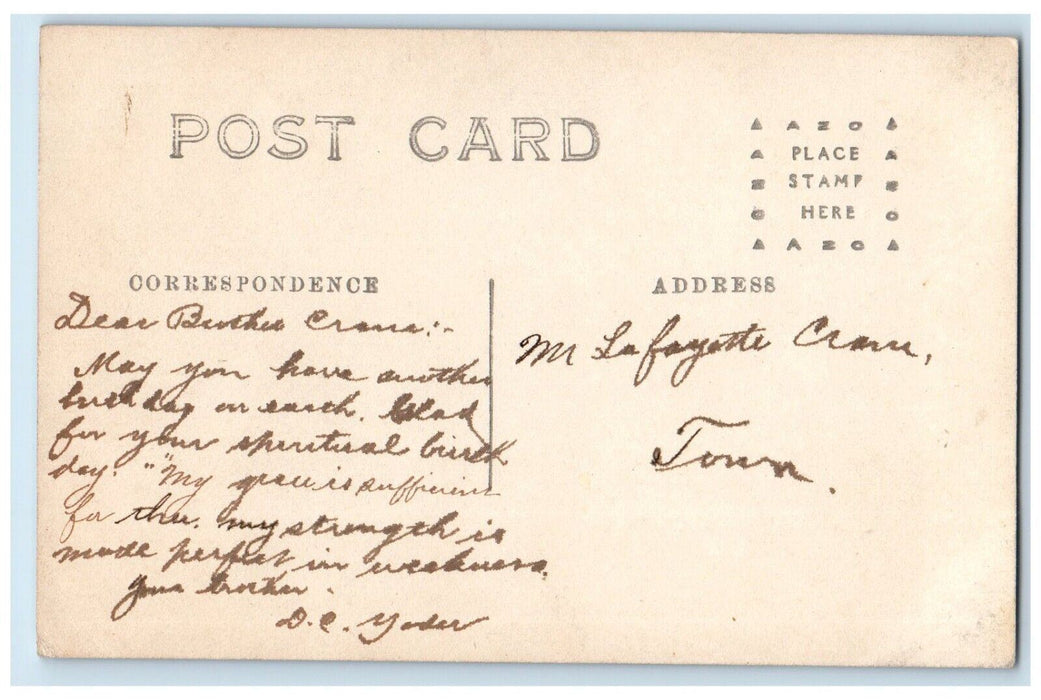 POST CARD
AZO
PLACE
STAMP
HERE
AZO
CORRESPONDENCE
ADDRESS
Dear Brother Crane:-
May you have another
birthday on earth. Glad
for your spiritual birth
day. "My grace is sufficient
for thee. my strength is
made perfect in weakness.
Your brother.
D.C. Yoder
Mr Lafayette Crane,
Town.